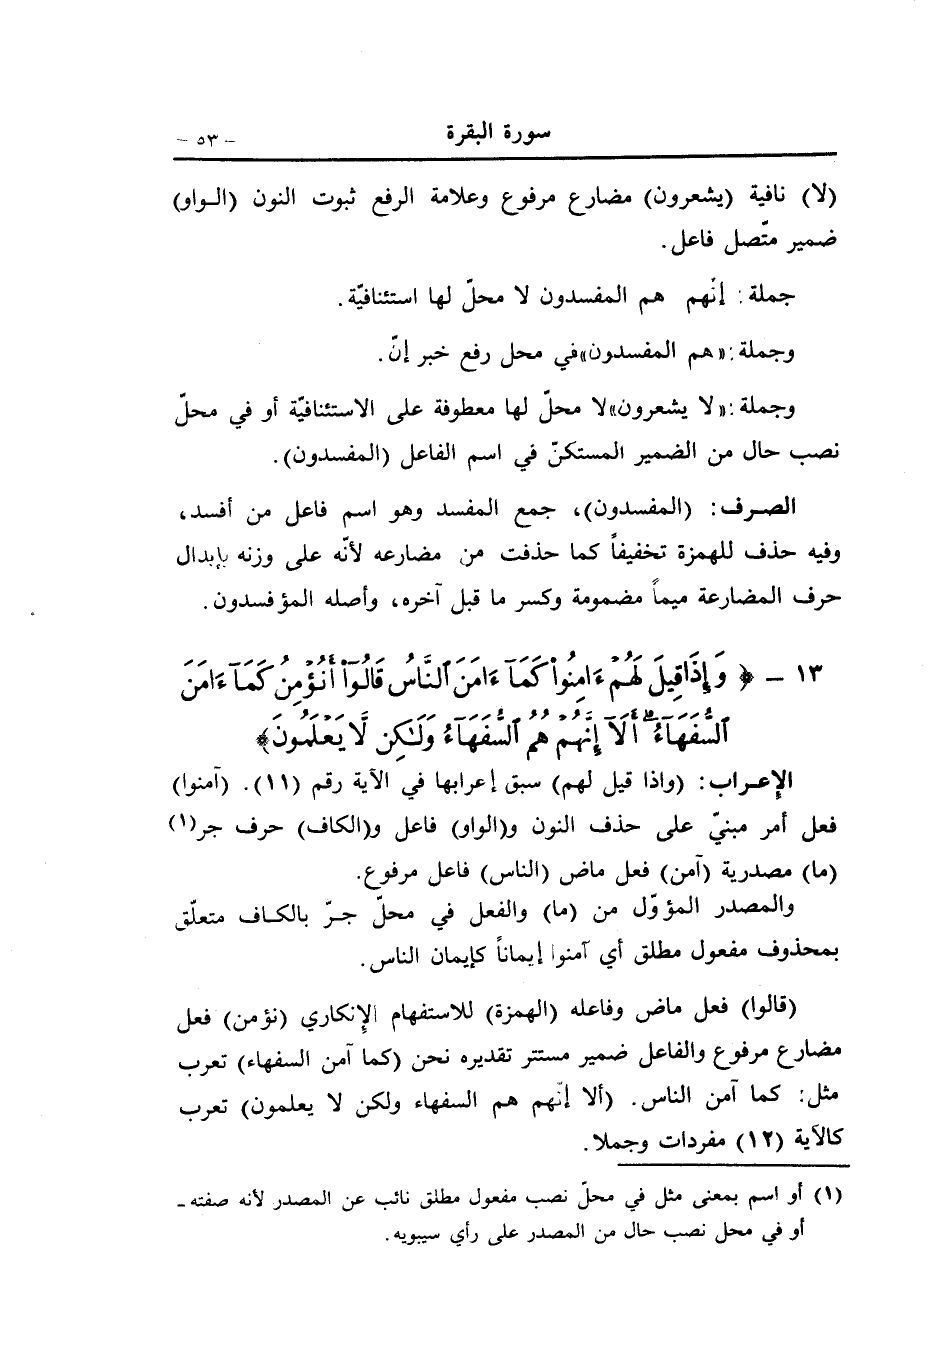 سورة البقرة
– ٥٣ –
(لا) نافية (يشعرون) مضارع مرفوع وعلامة الرفع ثبوت النون (الـواو)
ضمير متّصل فاعل.
جملة: إنّهم هم المفسدون لا محلّ لها استئنافيّة.
وجملة: «هم المفسدون» في محل رفع خبر إنّ.
وجملة: «لا يشعرون» لا محلّ لها معطوفة على الاستئنافيّة أو في محلّ
نصب حال من الضمير المستكنّ في اسم الفاعل (المفسدون).
الصـرف: (المفسدون)، جمع المفسد وهو اسم فاعل من أفسد،
وفيه حذف للهمزة تخفيفاً كما حذفت من مضارعه لأنّه على وزنه بإبدال
حرف المضارعة ميماً مضمومة وكسر ما قبل آخره، وأصله المؤفسدون.
١٣ – ﴿ وَإِذَا قِيلَ لَهُمْ ءَامِنُوا۟ كَمَآ ءَامَنَ ٱلنَّاسُ قَالُوٓا۟ أَنُؤْمِنُ كَمَآ ءَامَنَ
ٱلسُّفَهَآءُ ۗ أَلَآ إِنَّهُمْ هُمُ ٱلسُّفَهَآءُ وَلَٰكِن لَّا يَعْلَمُونَ﴾
الإعـراب: (واذا قيل لهم) سبق إعرابها في الآية رقم (١١). (آمنوا)
فعل أمر مبنيّ على حذف النون و(الواو) فاعل و(الكاف) حرف جر(١)
(ما) مصدرية (آمن) فعل ماض (الناس) فاعل مرفوع.
والمصدر المؤوّل من (ما) والفعل في محلّ جـرّ بالكـاف متعلّق
بمحذوف مفعول مطلق أي آمنوا إيماناً كإيمان الناس.
(قالوا) فعل ماض وفاعله (الهمزة) للاستفهام الإنكاري (نؤمن) فعل
مضارع مرفوع والفاعل ضمير مستتر تقديره نحن (كما آمن السفهاء) تعرب
مثل: كما آمن الناس. (ألا إنّهم هم السفهاء ولكن لا يعلمون) تعرب
كالآية (١٢) مفردات وجملا.
(١) أو اسم بمعنى مثل في محلّ نصب مفعول مطلق نائب عن المصدر لأنه صفته ـ
أو في محل نصب حال من المصدر على رأي سيبويه.